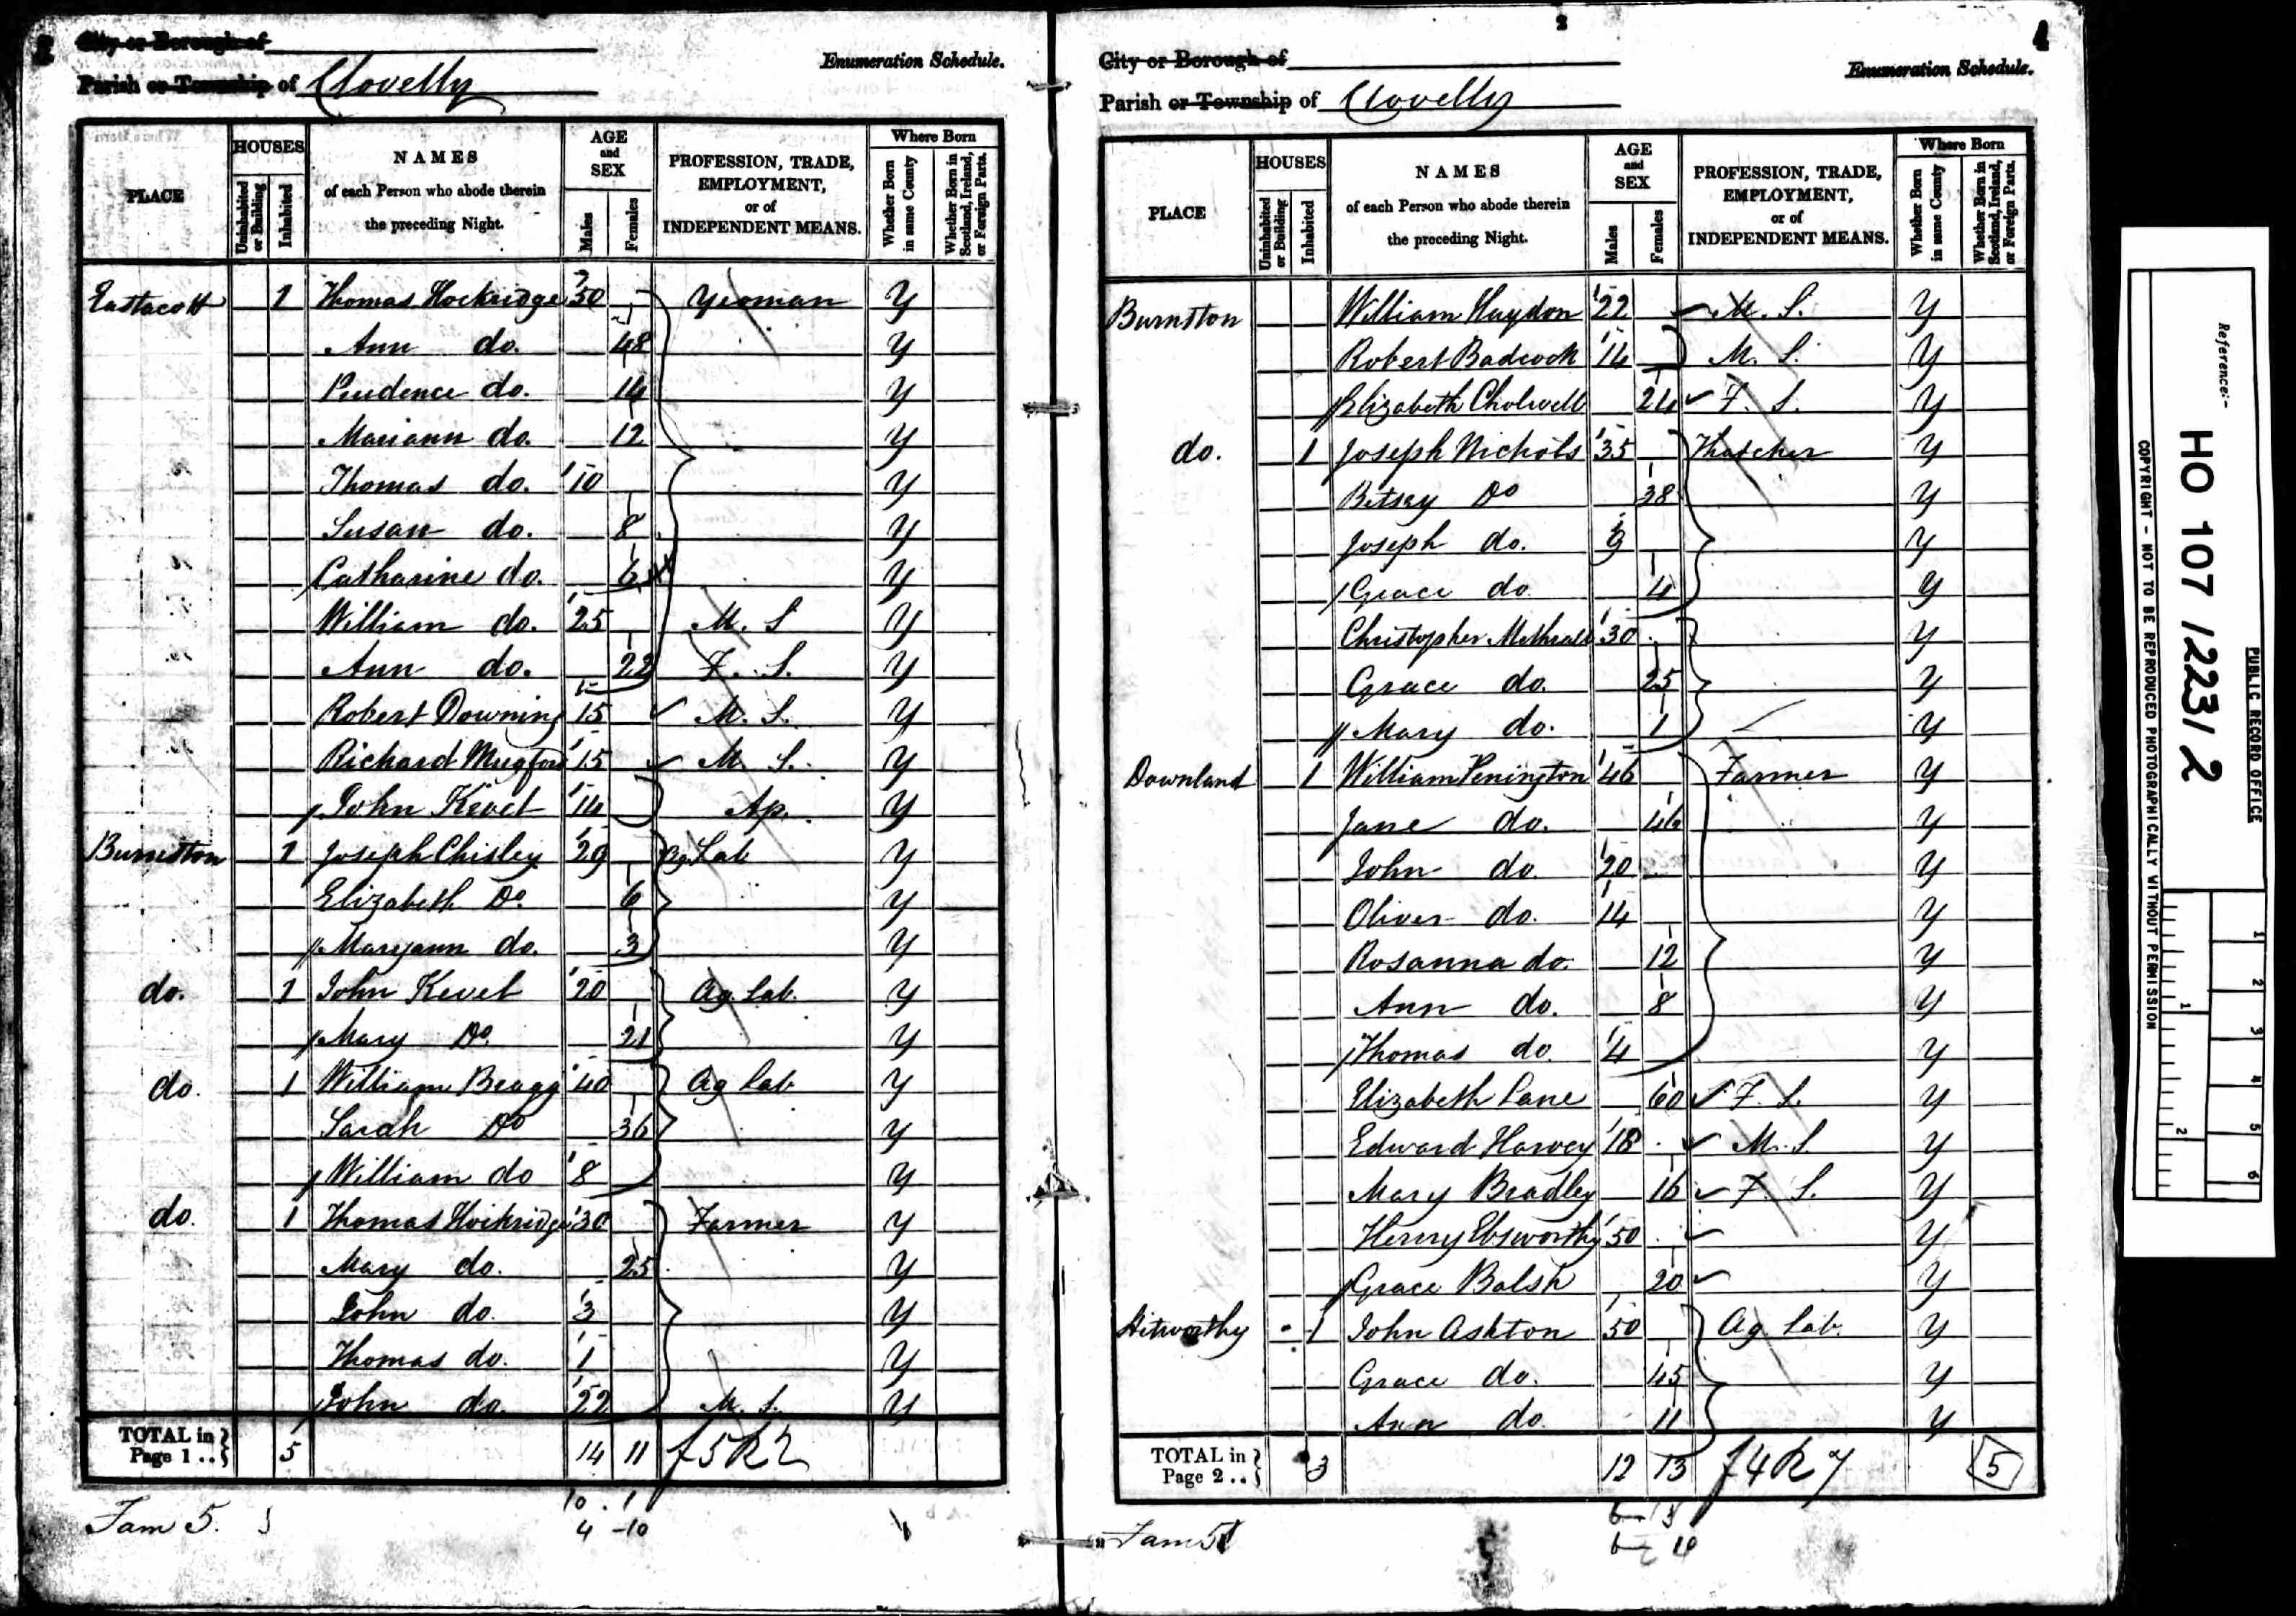 City or Borough of
Parish or Township of Clovelly
Enumeration Schedule.
PLACE
HOUSES
Uninhabited or Building
Inhabited
NAMES
of each Person who abode therein
the preceding Night.
AGE
and
SEX
Males
Females
PROFESSION, TRADE,
EMPLOYMENT,
or of
INDEPENDENT MEANS.
Where Born
Whether Born in same County
Whether Born in Scotland, Ireland, or Foreign Parts.
Eastacott 1 Thomas Hockridge 50 Yeoman Y
Ann do. 48 Y
Prudence do. 14 Y
Mariann do. 12 Y
Thomas do. 10 Y
Susan do. 8 Y
Catharine do. 6 Y
William do. 25 M. S Y
Ann do. 22 F. S. Y
Robert Downing 15 M. S. Y
Richard Mugford 15 M. S. Y
John Kevet 14 Ap. Y
Burnston 1 Joseph Chisley 29 Ag Lab Y
Elizabeth Do. 6 Y
Maryann do. 3 Y
do. 1 John Kevet 20 Ag. Lab. Y
Mary Do. 21 Y
do. 1 William Bragg 40 Ag Lab Y
Sarah Do 36 Y
William do 8 Y
do. 1 Thomas Hockridge 30 Farmer Y
Mary do. 25 Y
John do. 3 Y
Thomas do. 1 Y
John do. 22 M. S. Y
TOTAL in Page 1 .. 5 14 11 f5R2
10 . 1
Fam 5. 4 -10
2
4
City or Borough of
Parish or Township of Clovelly
Enumeration Schedule.
PLACE
HOUSES
Uninhabited or Building
Inhabited
NAMES
of each Person who abode therein
the preceding Night.
AGE
and
SEX
Males
Females
PROFESSION, TRADE,
EMPLOYMENT,
or of
INDEPENDENT MEANS.
Where Born
Whether Born in same County
Whether Born in Scotland, Ireland, or Foreign Parts.
Burnston William Haydon 22 M. S. Y
Robert Badcock 14 M. S. Y
Elizabeth Cholwell 24 F. S. Y
do. 1 Joseph Nichols 35 Thatcher Y
Betsey Do 38 Y
Joseph do. 9 Y
Grace do 4 Y
Christopher 30 Y
Grace do. 25 Y
Mary do. 1 Y
Downland 1 William Penington 46 Farmer Y
Jane do. 46 Y
John do 20 Y
Oliver do. 14 Y
Rosanna do. 12 Y
Ann do. 8 Y
Thomas do 4 Y
Elizabeth Lane 60 F. S. Y
Edward Harvey 18 M. S. Y
Mary Bradley 16 F. S. Y
Henry Ebsworthy 50 Y
Grace Balsh 20 Y
Hitworthy 1 John Ashton 50 Ag. Lab. Y
Grace do. 45 Y
Ann do. 11 Y
TOTAL in Page 2 .. 3 12 13 f4R7 5
Fam 5
Reference:-
HO 107 / 223 / 2
PUBLIC RECORD OFFICE
COPYRIGHT - NOT TO BE REPRODUCED PHOTOGRAPHICALLY WITHOUT PERMISSION
1 2 3 4 5 6
1 2